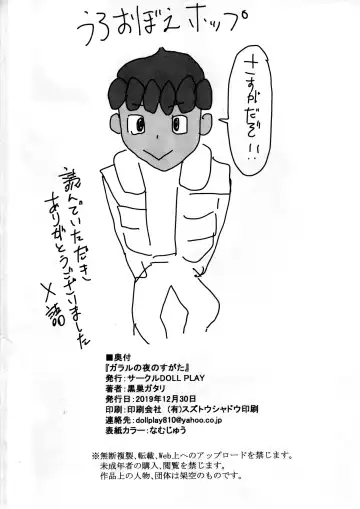 うろおぼえホップ
さすがだぞ!!
読んでいただき
ありがとうございました
×語
■奥付
『ガラルの夜のすがた』
発行：サークルDOLL PLAY
著者：黒巣ガタリ
発行日：2019年12月30日
印刷：印刷会社　(有)スズトウシャドウ印刷
連絡先：dollplay810@yahoo.co.jp
表紙カラー：なむじゅう
※無断複製、転載、Web上へのアップロードを禁じます。
未成年者の購入、閲覧を禁じます。
作品上の人物、団体は架空のものです。